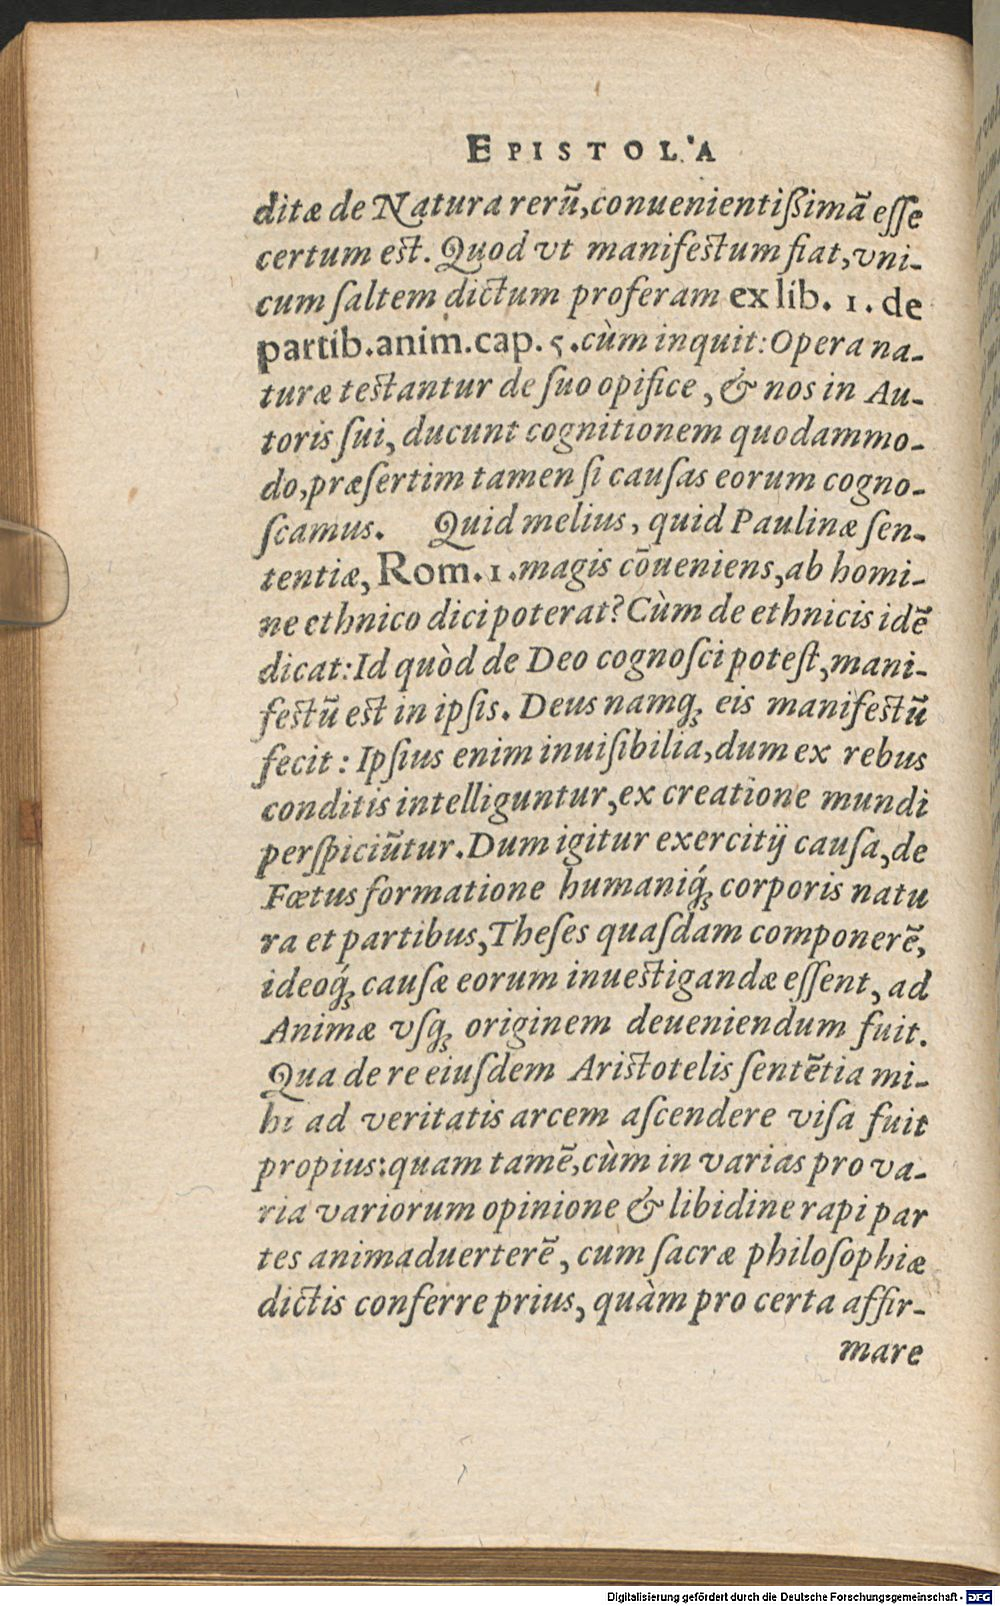 EPISTOLA
ditæ de Natura rerū, conuenientißimā eſſe
certum est. Quod vt manifestum fiat, vni-
cum ſaltem dictum proferam ex lib. 1. de
partib. anim. cap. 5. cùm inquit: Opera na-
turæ testantur de ſuo opifice, & nos in Au-
toris ſui, ducunt cognitionem quodammo-
do, præſertim tamen ſi cauſas eorum cogno-
ſcamus. Quid melius, quid Paulinæ ſen-
tentiæ, Rom. 1. magis cōueniens, ab homi-
ne ethnico dici poterat? Cùm de ethnicis idē
dicat: Id quòd de Deo cognoſci poteſt, mani-
festū est in ipſis. Deus namq; eis manifestū
fecit: Ipſius enim inuiſibilia, dum ex rebus
conditis intelliguntur, ex creatione mundi
perſpiciūtur. Dum igitur exercitij cauſa, de
Fœtus formatione humaniq́; corporis natu
ra et partibus, Theſes quaſdam componerē,
ideoq́; cauſæ eorum inuestigandæ eſſent, ad
Animæ vſq; originem deueniendum fuit.
Qua de re eiuſdem Aristotelis ſentētia mi-
hi ad veritatis arcem aſcendere viſa fuit
propius: quam tamē, cùm in varias pro va-
ria variorum opinione & libidine rapi par
tes animaduerterē, cum ſacræ philoſophiæ
dictis conferre prius, quàm pro certa affir-
mare
Digitalisierung gefördert durch die Deutsche Forschungsgemeinschaft - DFG